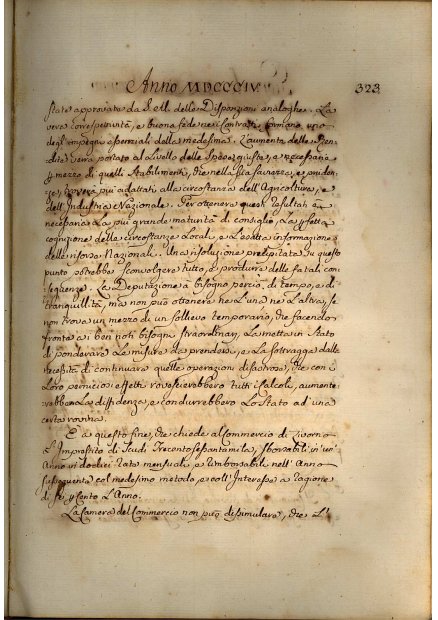 Anno MDCCCIV. 323
state approvate da S. M. delle Disposizioni analoghe. La
vera corrispettività, e buona fede nei Contratti formano uno
degl'impegni essenziali della medesima. L'aumento delle Ren-
dite sarà portato al Livello delle Spese giuste, e necessarie
p mezzo di quelli Stabilimenti, che nella sua saviezza, e pruden-
za, troverà più adattati alla circostanza dell'Agricoltura, e
dell'Industria Nazionale. Per ottenere questi resultati è
necessaria La più grande maturità di consiglio, La pfetta
cognizione delle circostanze Locali, e L'esatta informazione
delle risorse Nazionali. Una risoluzione precipitata Su questo
punto potrebbe sconvolgere tutto, e produrre delle fatali con-
seguenze. La Deputazione à bisogno perciò, di tempo, e di
tranquillità, ma non può ottenere nè L'una nè L'altra, se
non trova un mezzo di un sollievo temporario, che facendo
fronte a ben noti bisogni straordinarj, La metta in stato
di ponderare Le misure da prendersi, e La sottragga dalla
necessità di continuare quelle operazioni disastrose, che con i
Loro perniciosi effetti rovescierebbero tutti i Calcoli, aumente-
rebbero La diffidenza, e condurrebbero Lo Stato ad una
certa rovina.
E a questo fine, che chiede al Commercio di Livorno
L'Imprestito di Scudi Trecentosettantamila, sborsabili in un'
Anno in dodici rate mensuali e rimborsabile nell'Anno
susseguente col medesimo metodo, e coll'Interesse a ragione
di p Cento L'Anno.
La Camera del Commercio non può dissimulare, che L'